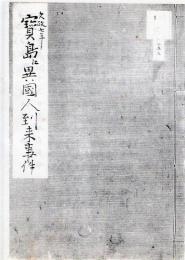 文政七年
寳島江異國人到来事件